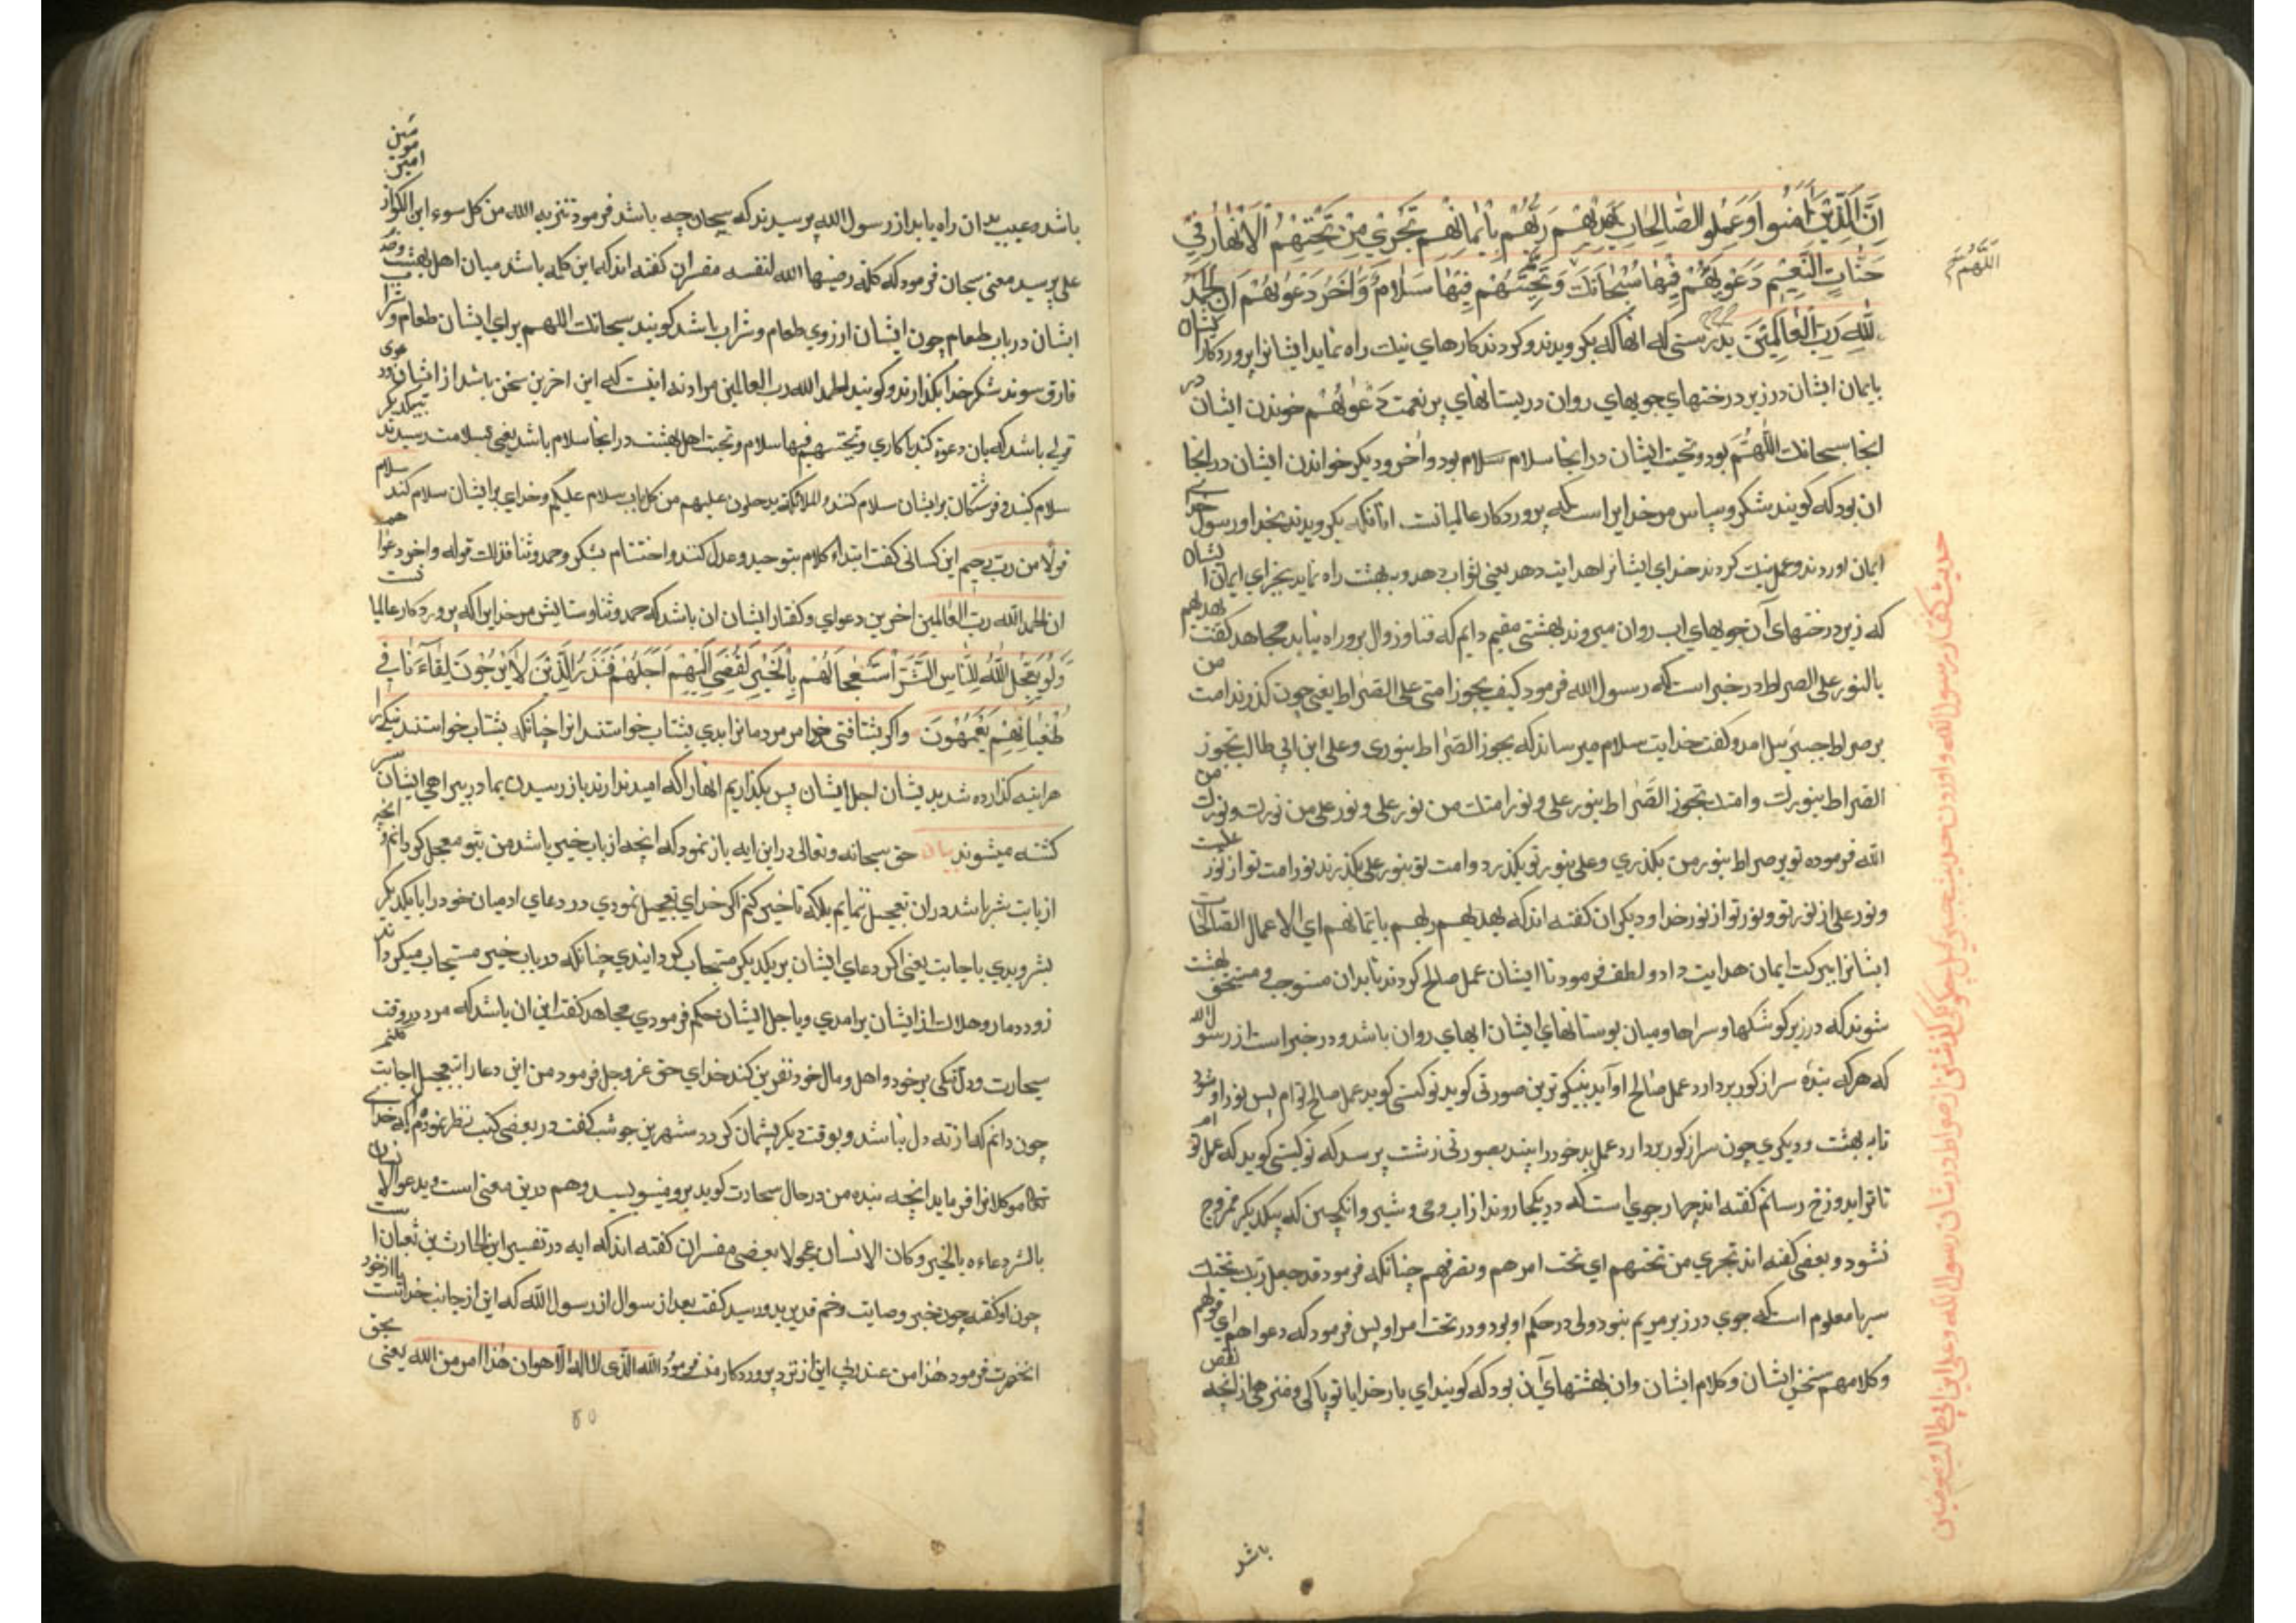 اِنَّ الَّذِیْنَ اٰمَنُوا وَعَمِلُو الصَّالِحَاتِ یَهْدِیْهِمْ رَبُّهُمْ بِاِیْمَانِهِمْ تَجْرِيْ مِنْ تَحْتِهِمُ الْاَنْهَارُ فِيْ
اللّٰهُمَّ
جَنَّاتِ النَّعِیْمِ دَعْوٰیهُمْ فِیْهَا سُبْحَانَكَ وَتَحِیَّتُهُمْ فِیْهَا سَلَامٌ وَاٰخِرُ دَعْوٰیهُمْ اَنِ الْحَمْدُ
لِلّٰهِ رَبِّ الْعَالَمِیْنَ بدرستی که انها که بکرویدند و کردند کارهاي نیك راه نماید ایشانرا پروردکار ایشان
بایمان ایشان در زیر درختهاي جویهاي روان در بستانهاي پر نعمت دَعْوٰیهُمْ خوندن ایشان در
انجا سبحانك اللّٰهُمَّ بود و تحیت ایشان در انجا سلام سلام بود و اٰخر و دیکر خواندن ایشان در انجا
ان بود که کویند شکر و سپاس مر خدایرا است که پروردکار عالمیانت. انانکه بکرویدند بخدا و رسول خداي
ایمان اوردند و عمل نیك کردند خداي ایشانرا هدایت دهد یعنی ثواب دهد و ببهشت راه نماید بجزاي ایمان ایشان
که زیر درختهاي آن جویهاي اب روان میروند بهشتی مقیم دایم که فنا و زوال برو راه نیابد مجاهد کفت یهدیهم
بالنور علی الصراط در خبر است که رسول الله فرمود کیف یجوز امتی علی الصراط یعنی چون کذرند امت من
بر صراط جبرئیل امد و کفت خدایت سلام میرساند که یجوز الصراط بنوری و علی ابن ابی طالب یجوز
الصراط بنورك و امتك تجوز الصراط بنور علی و نور امتك من نور علی و نور علی من نورك و نورك من
الله فرموده تو بر صراط بنور من بکذري و علی بنور تو بکذرد و امت تو بنور علی بکذرند نور امت تو از نور علیست
و نور علی از نور تو و نور تو از نور خدا و دیکران کفته اند که یهدیهم ربهم بایمانهم اي الاعمال الصالحات
ایشانرا ببرکت ایمان هدایت داد و لطف فرمود تا ایشان عمل صالح کردند تا بدان مستوجب و مستحق بهشت
شوند که در زیر کوشکها و سراها و میان بوستانهاي ایشان ابهاي روان باشد و در خبر است از رسول الله
که هر که بنده سر از کور بردارد عمل صالح او آید بنیکوترین صورتی کوید تو کیستی کوید عمل صالح توام پس نور او شود
تا به بهشت و دیکري چون سر از کور بردارد عمل بد خود را بیند بصورتی زشت پرسد که تو کیستی کوید که عمل توام
تا ترا بدوزخ رسانم کفته اند چهار جوي است که در یکجا روند از اب و می و شیر و انکبین که بیکدیکر ممزوج
نشود و بعضی کفته اند تجري من تحتهم اي تحت امرهم و تصرفهم چنانکه فرمود قد جعل ربك تحتك
سریا معلوم است که جوي در زیر مریم بنود ولی در حکم او بود و در تحت امر او پس فرمود که دعواهم اي قولهم
و کلامهم سخن ایشان و کلام ایشان و ان بهشتهاي آن بود که کویند اي بار خدایا تو پاکی و منزهی از انچه نقص
باشد
حدیث کفتار رسول الله و اوردن حدیث جبرئیل چکونکی کذشتن از صراط در شان رسول الله و علی ابن ابی طالب و مومنین
مبین
مومنین
امیر
باشد و عیب بدان راه یابد از رسول الله پرسیدند که سبحان چه باشد فرمود تنزیه الله من کل سوء ابن الکواز
علی پرسید معنی سبحان فرمود که کلمه رضیها الله لنفسه مفسران کفته اند که این کلمه باشد میان اهل بهشت
ایشان در باب طعام چون ایشان ارزوي طعام و شراب باشد کویند سبحانك اللهم براي ایشان طعام و شراب
فارق سوند شکر خدا بکذارند و کویند الحمد لله رب العالمین مراد نه اینست که این اخرین سخن باشد از ایشان
قولی باشد که بان دعوه کنند با کاري و تحیتهم فیها سلام و تحیت اهل بهشت در انجا سلام باشد یعنی بسلامت رسیدند
سلام کنند و فرشتکان بر ایشان سلام کنند و الملائکة یدخلون علیهم من کل باب سلام علیکم و خداي بر ایشان سلام کند سلام
قولا من رب رحیم ابن کسانی کفت ابتداء کلام بتوحید و عدل کنند و اختتام بشکر و حمد و ثنا فذلك قوله و اخر دعوا هم
ان الحمد لله رب العالمین اخرین دعواي و کفتار ایشان ان باشد که حمد و ثنا و ستایش مر خدایرا که پروردکار عالمیا نست
وَلَوْ یُعَجِّلُ اللّٰهُ لِلنَّاسِ الشَّرَّ اسْتِعْجَالَهُمْ بِالْخَیْرِ لَقُضِيَ اِلَیْهِمْ اَجَلُهُمْ فَنَذَرُ الَّذِیْنَ لَا یَرْجُوْنَ لِقَاءَنَا فِيْ
طُغْیَانِهِمْ یَعْمَهُوْنَ و اکر بشتافتی خدا مر مردمانرا ابدي بشتاب خواستند انرا چنانکه بشتاب خواستند نیکی را
هر اینه کذارده شد بدیشان اجل ایشان پس بکذاریم انهارا که امید ندارند باز رسیدن بما در بیراهی ایشان سر
کشته میشوند بیان حق سبحانه و تعالی در این ایه باز نمود که انچه از باب خیر باشد من بتو معجل کردانم و انچه
از باب شر باشد در ان تعجیل ننمایم بلکه تاخیر کنم اکر خداي تعجیل نمودي در دعاي ادمیان خود را با یکدیکر
بشر و بدي باجابت یعنی اکر دعاي ایشان بر یکدیکر مستجاب کردانیدي چنانکه در باب خیر مستجاب میکرداند
زود دمار و هلاك از ایشان برامدي و با جل ایشان حکم فرمودي مجاهد کفت این ان باشد که مرد در وقت
سحارت و دل تنکی بر خود و اهل و مال خود نفرین کند خداي حق عز و جل فرمود من این دعا را بتعجیل اجابت نکنم
چون دانم که از ته دل نباشد و بوقت دیکر پشمان کردد شهر بن حوشب کفت در بعضی کتب نظر نمودم که خداي
تعالی موکلانرا فرماید انچه بنده من در حال سحارت کوید برو منویسید و هم درین معنی است و یدعو الانسان
بالشر دعاءه بالخیر و کان الانسان عجولا بعضی مفسران کفته اند که ایه در تفسیر ابن الحارث بن نعمان است
چون او کفته چون خبر وصایت و خم غدیر بدو رسید کفت بعد از سوال از رسول الله که این از جانب خداست یا از خود
انحضرت فرمود هذا من عند ربی این از نزد پروردکار منست فرمود الله الذی لا اله الا هو ان هذا امر من الله یعنی بحق